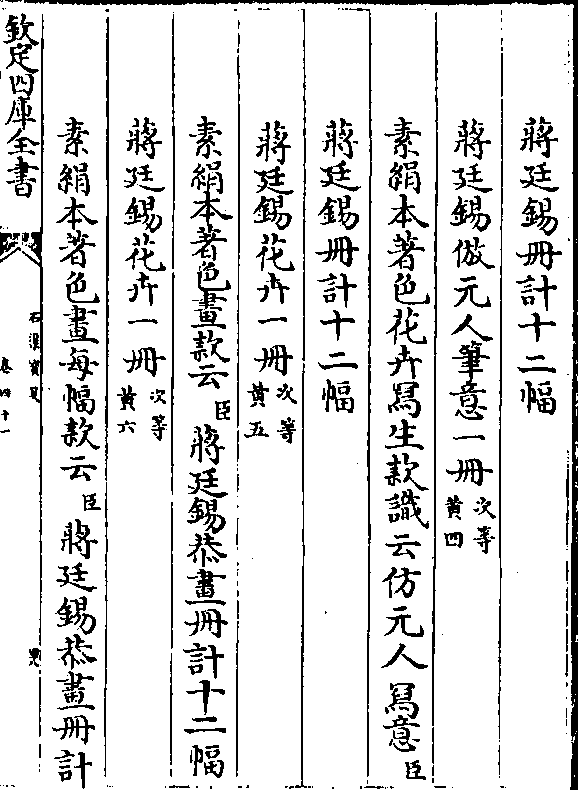 蔣廷錫冊計十二幅
蔣廷錫倣元人筆意一冊次等黄四
素絹本著色花卉寫生款識云仿元人寫意臣
蔣廷錫冊計十二幅
蔣廷錫花卉一冊次等黄五
素絹本著色畫款云臣蔣廷錫恭畫冊計十二幅
蔣廷錫花卉一冊次等黄六
素絹本著色畫每幅款云臣蔣廷錫恭畫冊計
欽定四庫全書
石渠寳笈
卷四十一